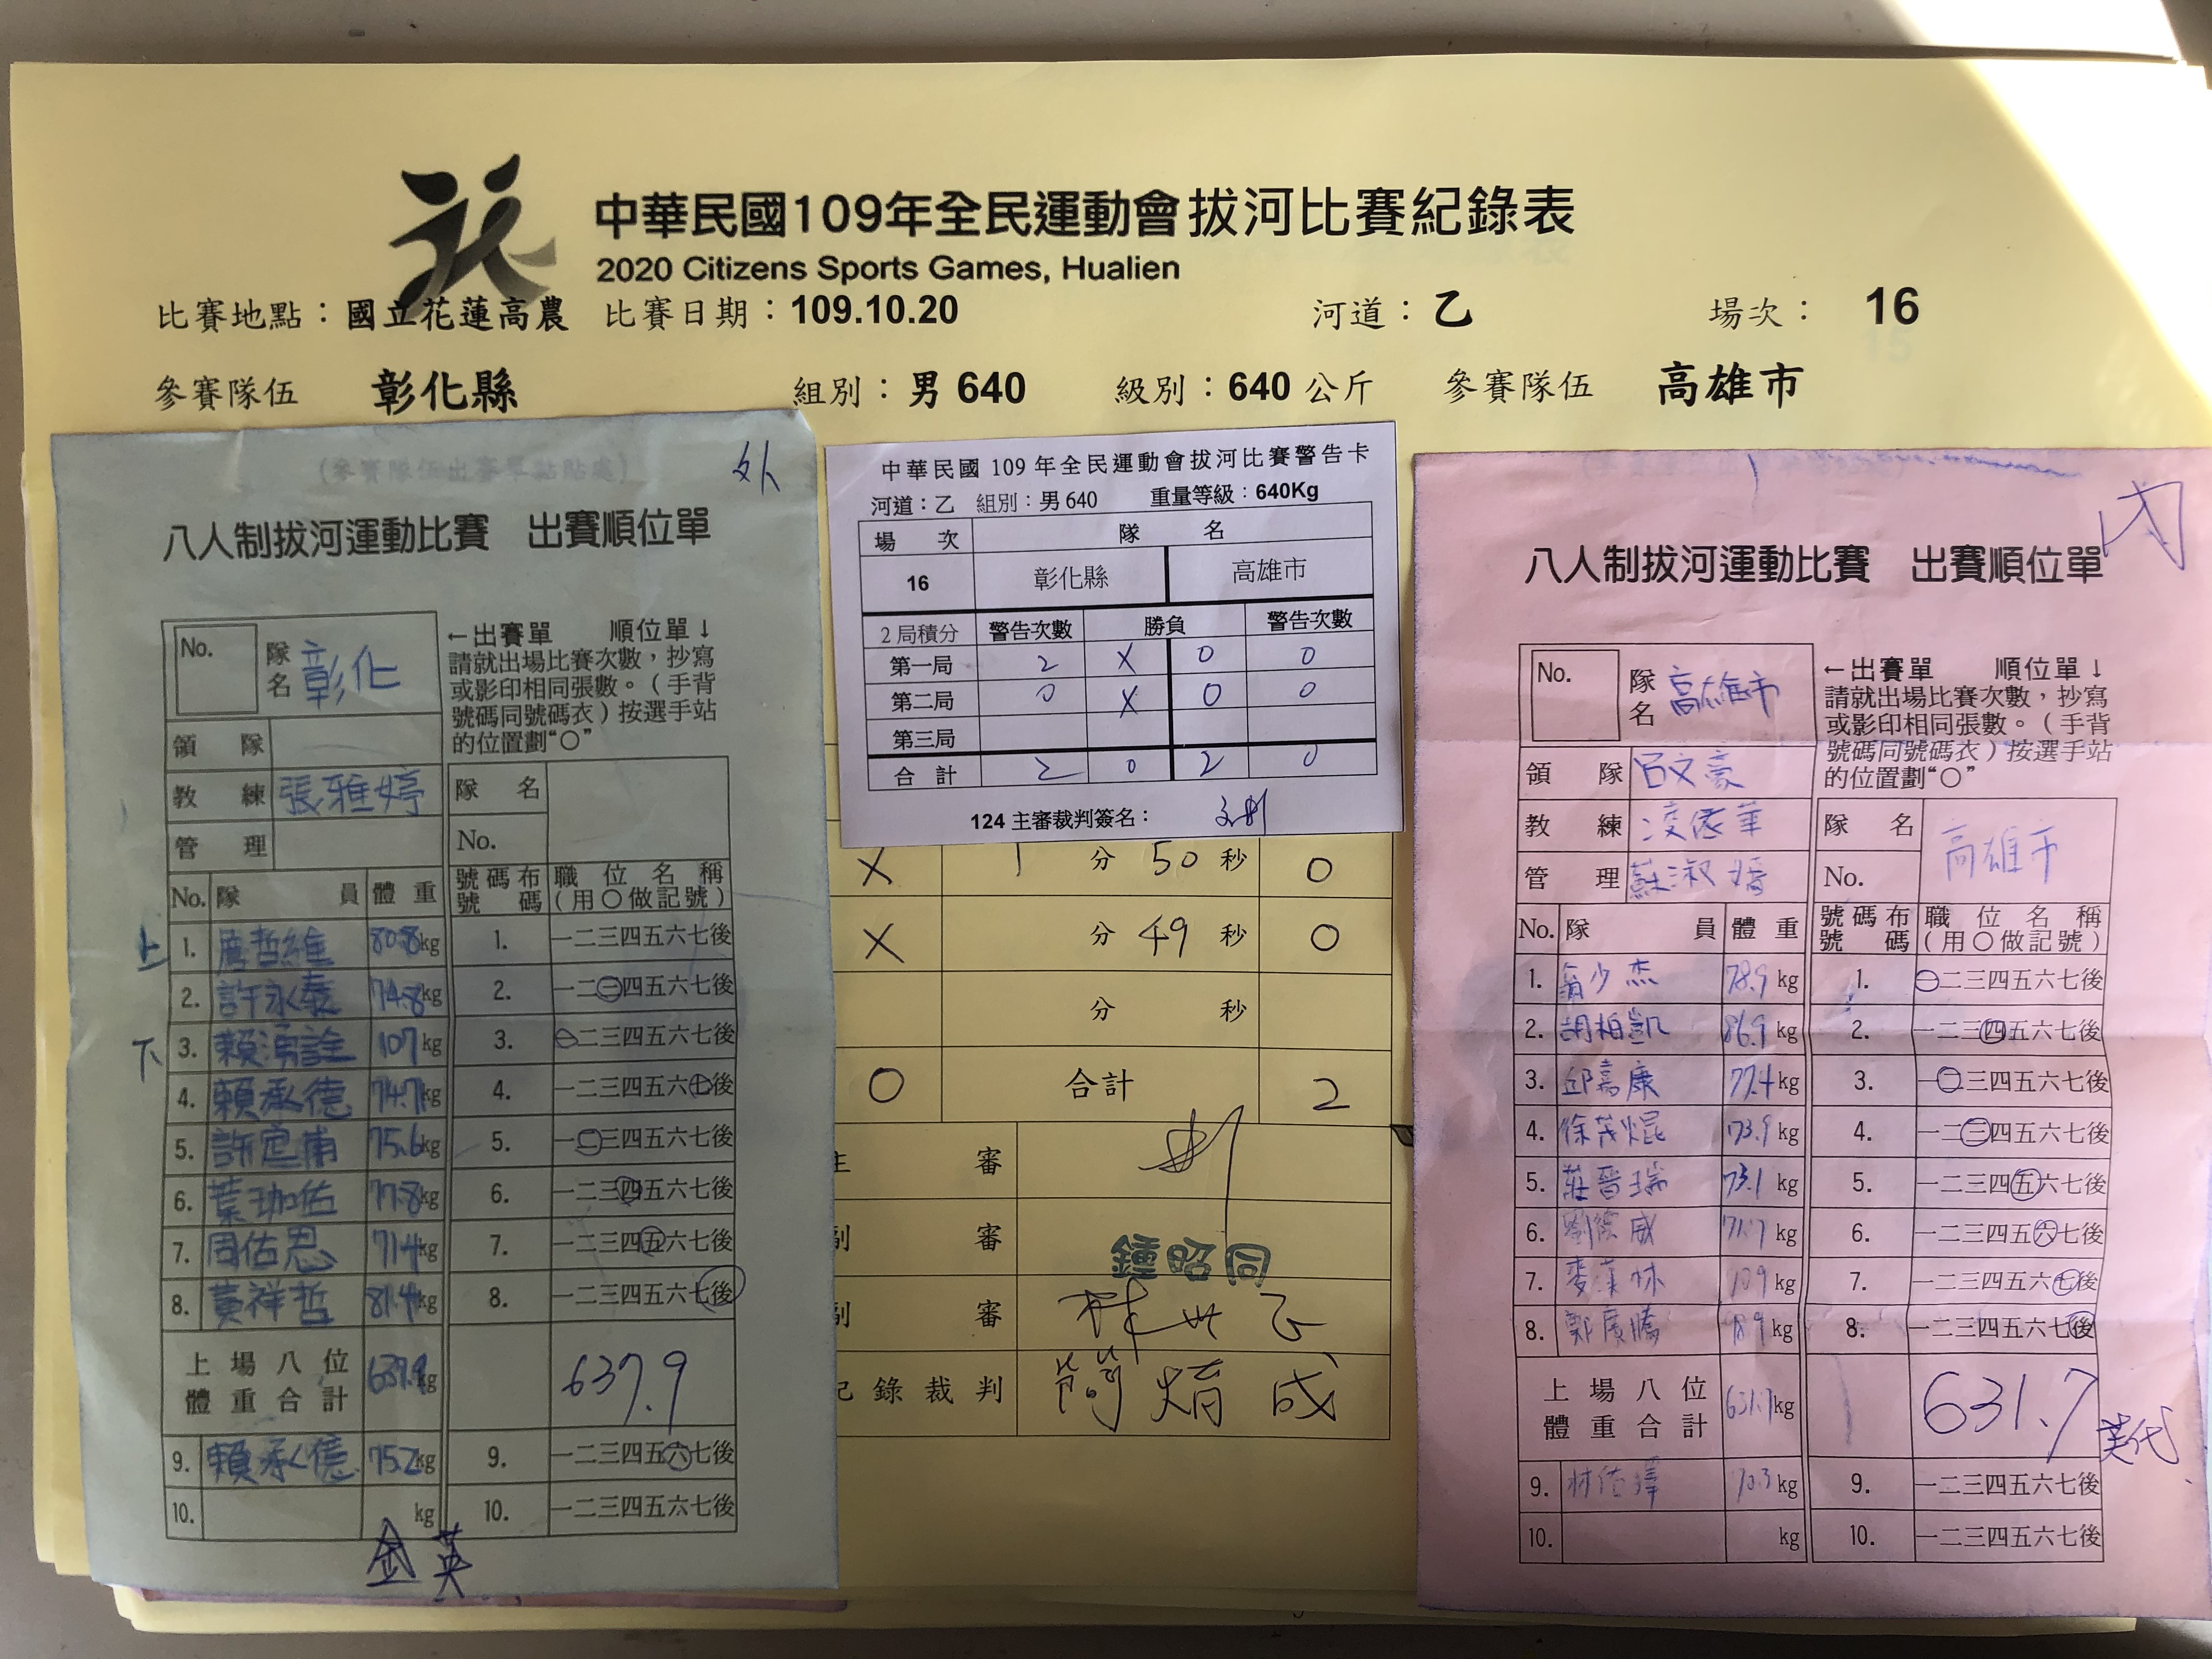 中華民國109年全民運動會拔河比賽紀錄表
2020 Citizens Sports Games, Hualien
比賽地點：國立花蓮高農 比賽日期：109.10.20 河道：乙 場次： 16
參賽隊伍 彰化縣 組別：男 640 級別：640 公斤 參賽隊伍 高雄市
外
(參賽隊伍出賽單黏貼處)
八人制拔河運動比賽 出賽順位單
No. 隊名 彰化
←出賽單 順位單↓
請就出場比賽次數，抄寫
或影印相同張數。（手背
號碼同號碼衣）按選手站
的位置劃“○”
領隊
教練 張雅婷
管理
隊名
No.
No. 隊員 體重 號碼布號碼 職位名稱(用○做記號)
上 1. 哲維 80.8kg 1. 一二三四五六七後
2. 許永泰 74.8kg 2. 一二三四五六七後
下 3. 賴湧詮 107kg 3. 一二三四五六七後
4. 賴承德 74.7kg 4. 一二三四五六七後
5. 許定甫 75.6kg 5. 一二三四五六七後
6. 葉珈佑 77.8kg 6. 一二三四五六七後
7. 周佑恩 71.4kg 7. 一二三四五六七後
8. 黃祥哲 81.4kg 8. 一二三四五六七後
上場八位體重合計 637.9kg 637.9
9. 賴承億 75.2kg 9. 一二三四五六七後
10. kg 10. 一二三四五六七後
金英
中華民國 109 年全民運動會拔河比賽警告卡
河道：乙 組別：男 640 重量等級：640Kg
場次 隊名
16 彰化縣 高雄市
2 局積分 警告次數 勝負 警告次數
第一局 2 X 0 0
第二局 0 X 0 0
第三局
合計 2 0 2 0
124 主審裁判簽名：
X 1 分 50 秒 O
X 分 49 秒 O
分 秒
0 合計 2
主審
副審 鍾昭同
副審 林世
記錄裁判 簡 成
內
八人制拔河運動比賽 出賽順位單
No. 隊名 高雄市
←出賽單 順位單↓
請就出場比賽次數，抄寫
或影印相同張數。（手背
號碼同號碼衣）按選手站
的位置劃“○”
領隊 呂文豪
教練 凌 華
管理 蘇淑
隊名 高雄市
No.
No. 隊員 體重 號碼布號碼 職位名稱(用○做記號)
1. 翁少杰 78.9 kg 1. 一二三四五六七後
2. 胡柏凱 86.9 kg 2. 一二三四五六七後
3. 邱嘉康 77.4 kg 3. 一二三四五六七後
4. 徐茂焜 73.9 kg 4. 一二三四五六七後
5. 莊晉瑞 73.1 kg 5. 一二三四五六七後
6. 劉 威 71.7 kg 6. 一二三四五六七後
7. 麥 林 kg 7. 一二三四五六七後
8. 鄭 騰 kg 8. 一二三四五六七後
上場八位體重合計 631.7kg 631.7
9. 林佑擇 70.3 kg 9. 一二三四五六七後
10. kg 10. 一二三四五六七後